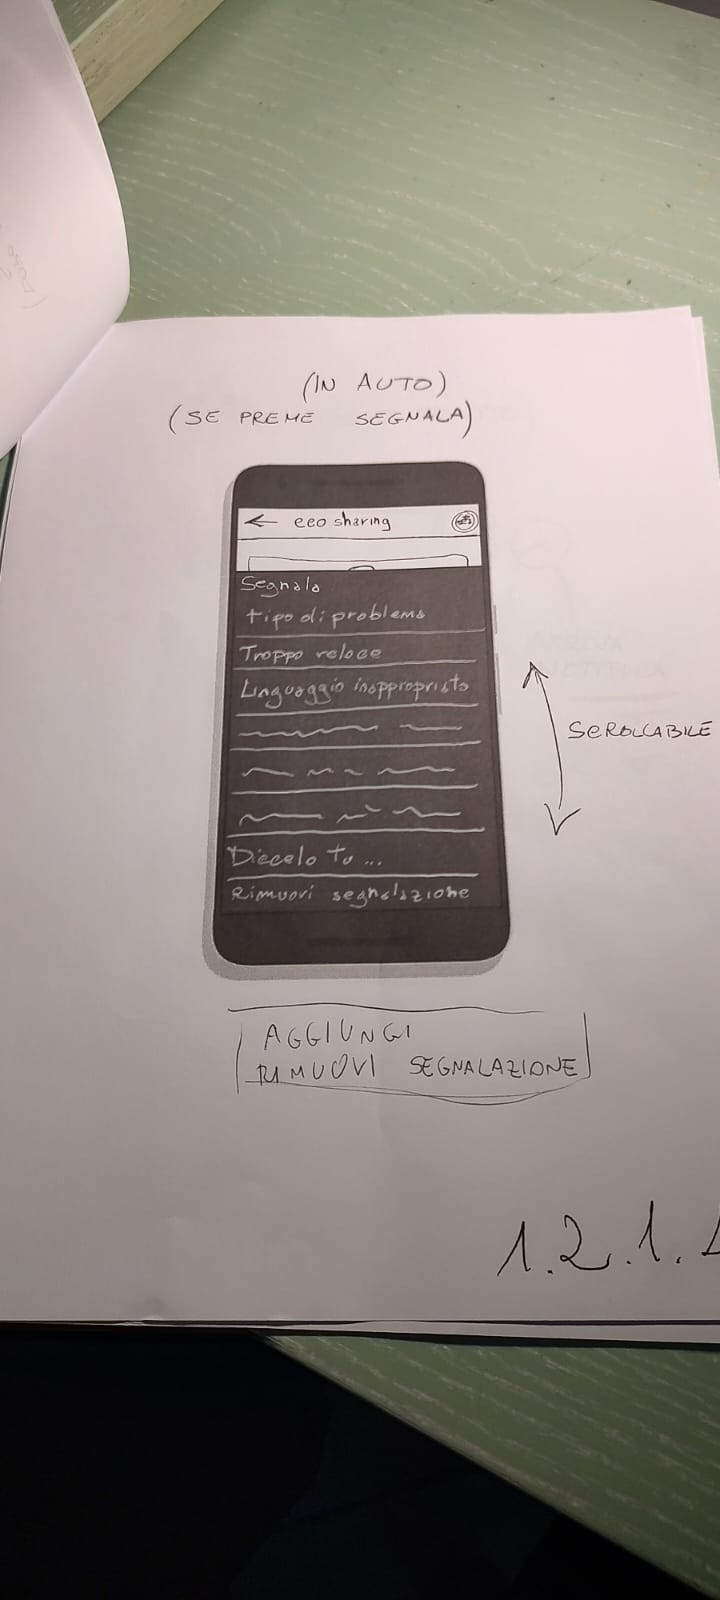 (IN AUTO)
(SE PREME SEGNALA)
← eco sharing
Segnala
tipo di problema
Troppo veloce
Linguaggio inappropriato
SCROLLABILE
Diccelo tu...
Rimuovi segnalazione
AGGIUNGI
RIMUOVI SEGNALAZIONE
1.2.1.